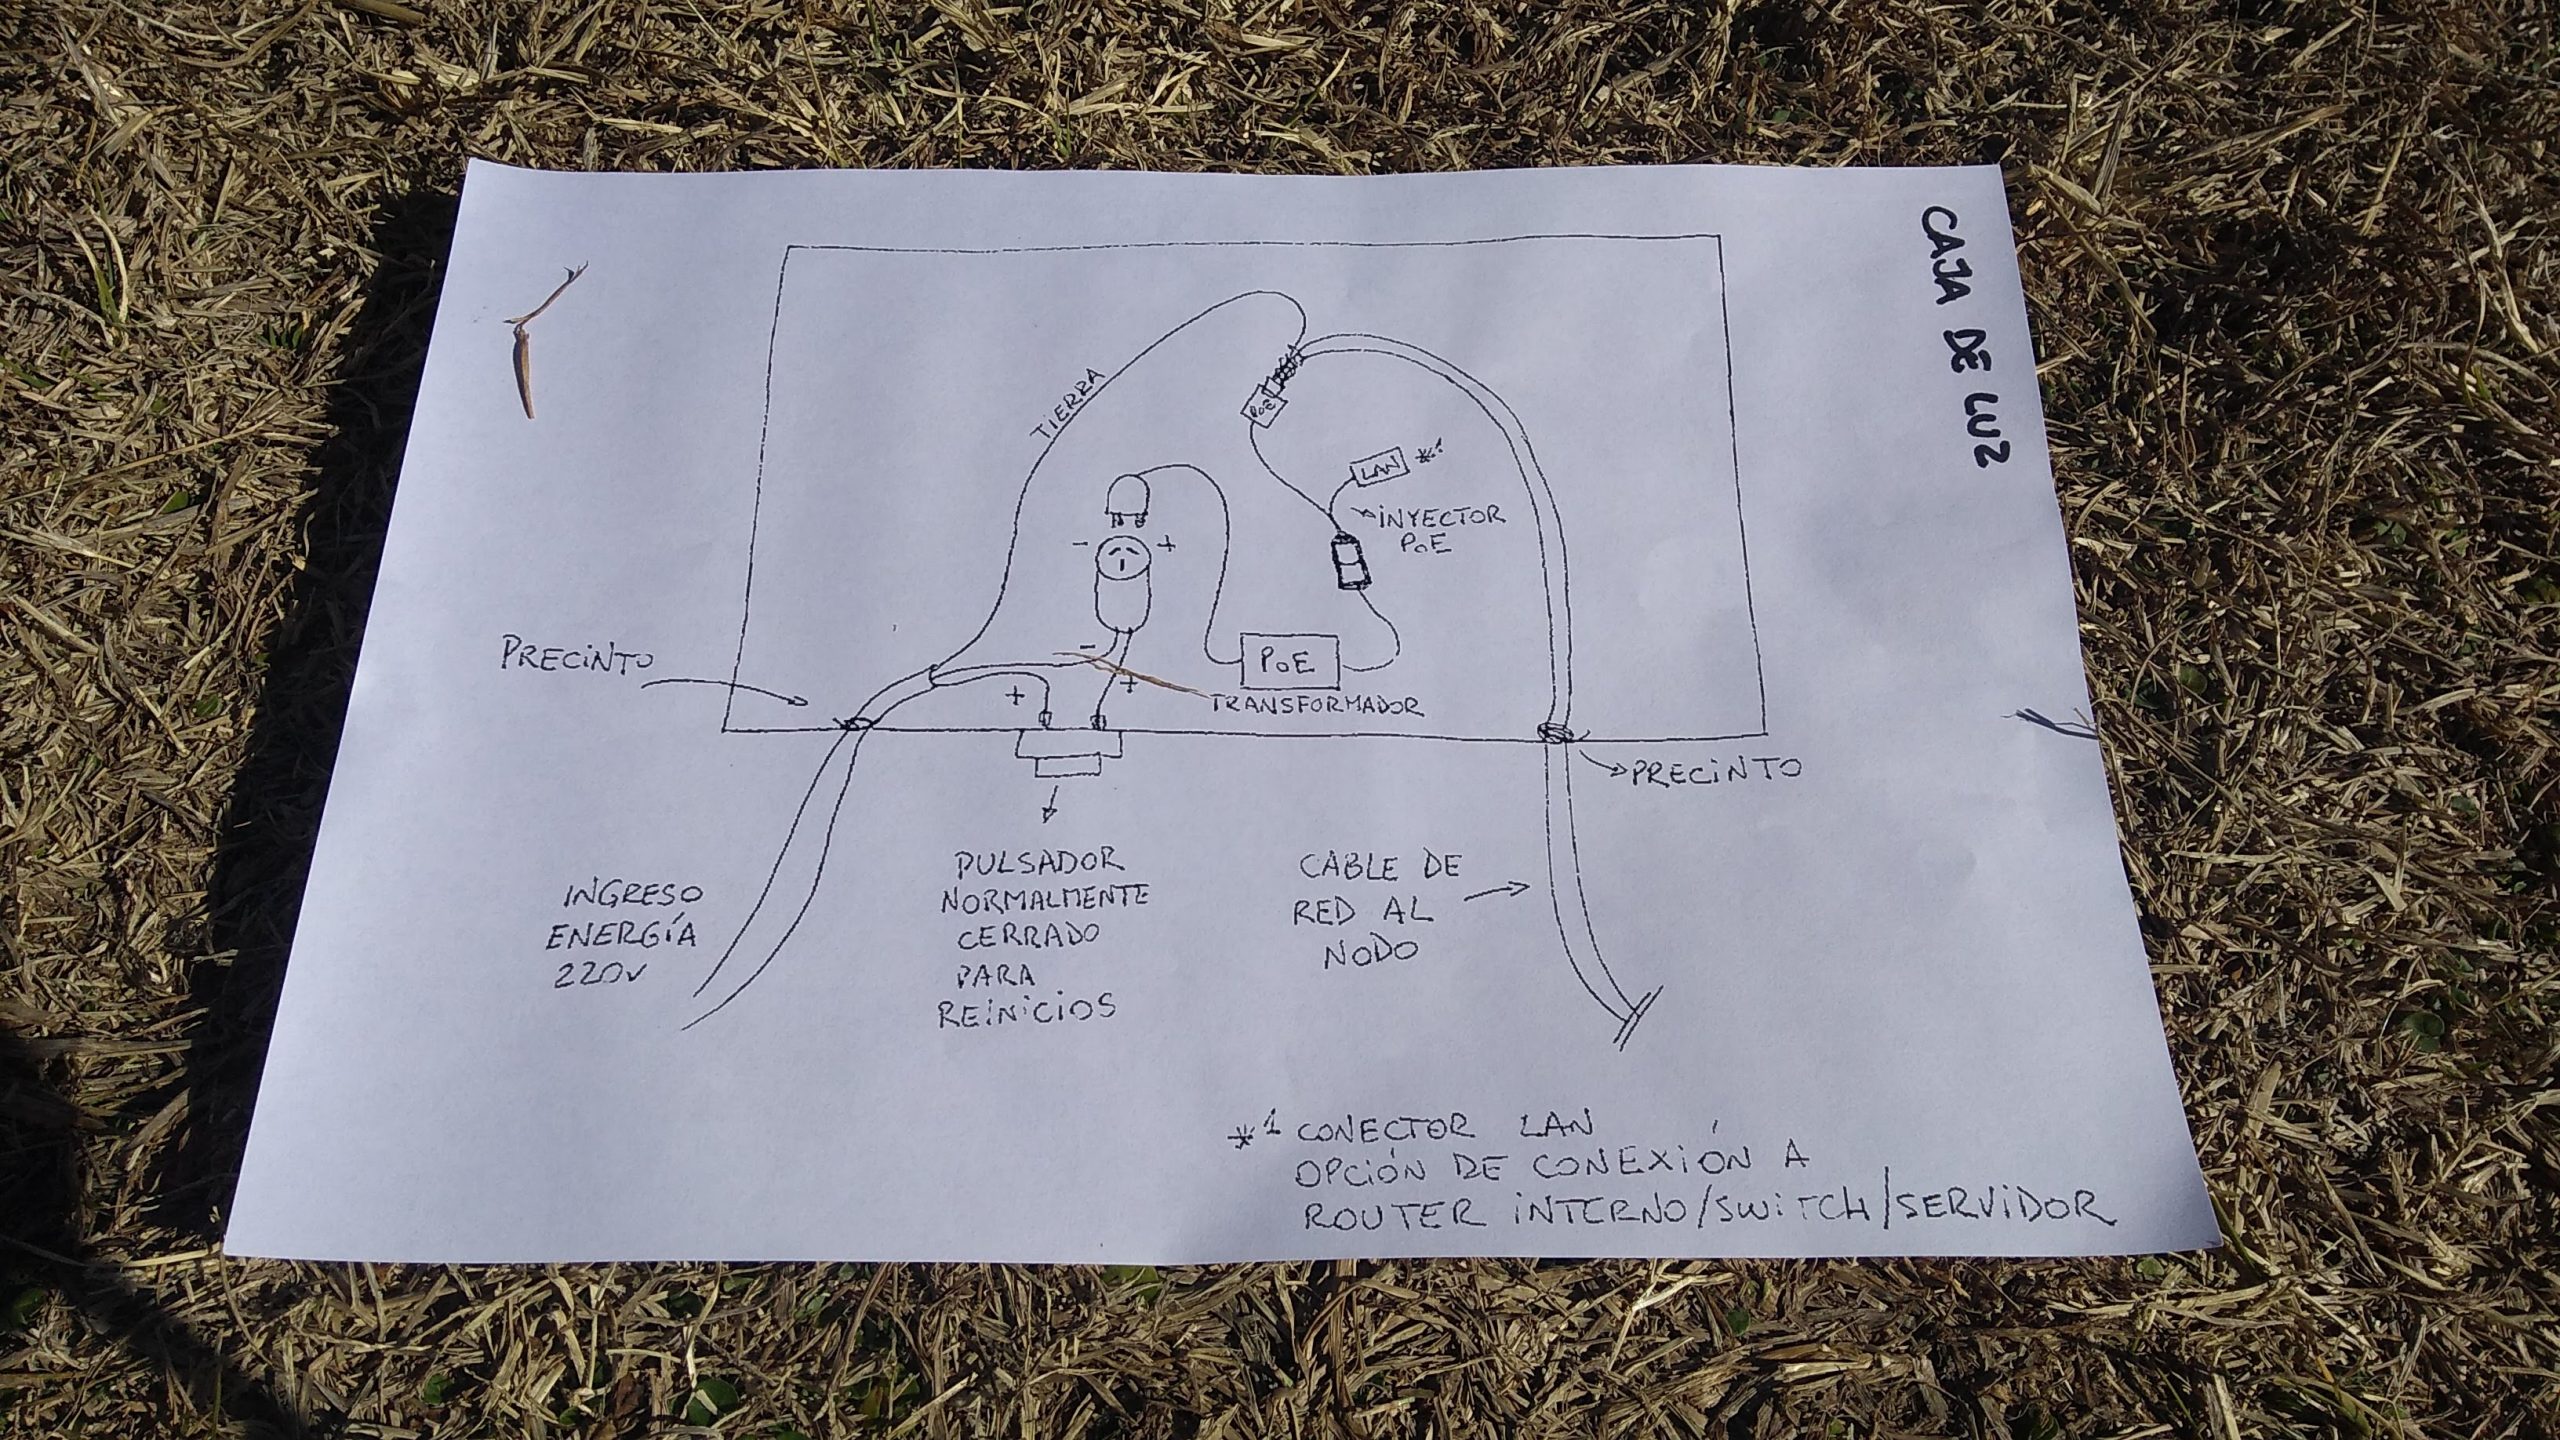 CAJA DE LUZ
TIERRA
PoE
LAN *1
INYECTOR
PoE
- +
PRECINTO
-
+ +
PoE
TRANSFORMADOR
PRECINTO
INGRESO
ENERGÍA
220v
PULSADOR
NORMALMENTE
CERRADO
PARA
REINICIOS
CABLE DE
RED AL
NODO
*1 CONECTOR LAN
OPCIÓN DE CONEXIÓN A
ROUTER INTERNO/SWITCH/SERVIDOR